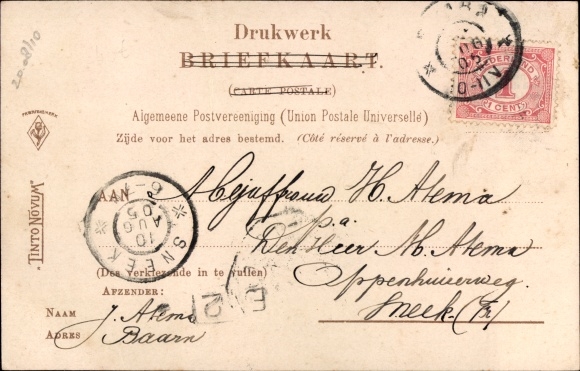 Drukwerk
BRIEFKAART.
(CARTE POSTALE)
Algemeene Postvereeniging (Union Postale Universelle)
Zijde voor het adres bestemd. (Côté réservé à l'adresse.)
AAN Mejuffrouw H. Atema
p.a.
Den Heer M. Atema
Oppenhuizerweg.
Sneek (Fr)
(Des verkiezende in te vullen)
AFZENDER:
NAAM J. Atema
ADRES Baarn
„TINTO NOVUM"
FABRIEKSMERK
20-08/10
SNEEK
10
AUG
05
NEDERLAND
1
1 CENT
10-11V